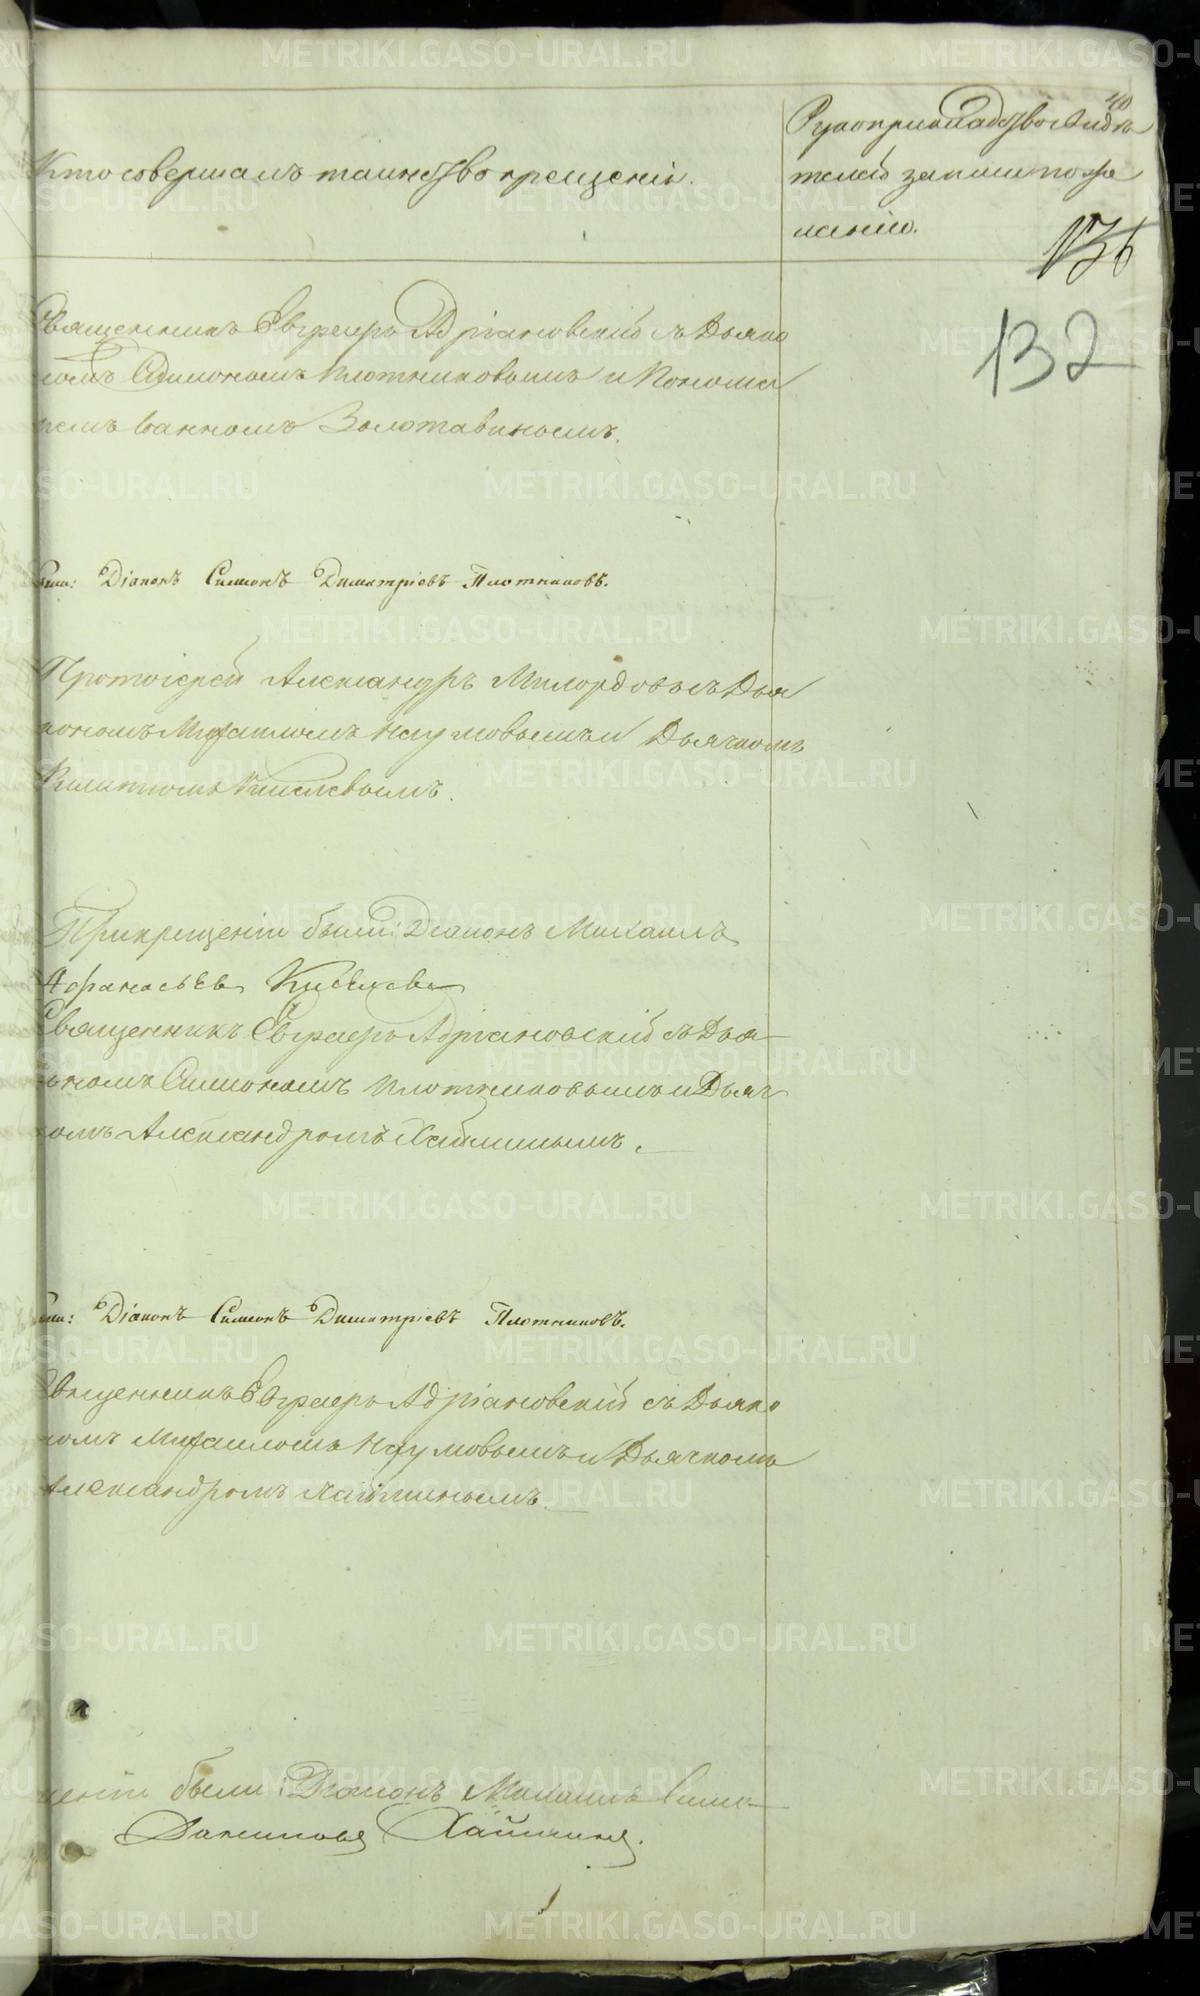 Кто совершалъ таинство крещенія.
Рукоприкладство свидѣ
телей записи по же
ланію.
40
136
132
Священникъ Евграфъ Адріановскій съ Дьяко
номъ Симономъ Плотниковымъ и Понома
ремъ Іоанномъ Золотавинымъ.
были: Діаконъ Симонъ Димитріевъ Плотниковъ.
Протоіерей Александръ Милордовъ съ Дья
кономъ Михаиломъ Наумовымъ и Дьячкомъ
Киселевымъ.
При крещеніи были: Діаконъ Михаилъ
Афанасьевъ Киселевъ
Священникъ Евграфъ Адріановскій съ Дья
кономъ Симономъ Плотниковымъ и Дьяч
комъ Александромъ Хайминымъ.
были: Діаконъ Симонъ Димитріевъ Плотниковъ.
Священникъ Евграфъ Адріановскій съ Дьяко
номъ Михаиломъ Наумовымъ и Дьячкомъ
Александромъ Хайминымъ.
щеніи были: Діаконъ Михаилъ
Хайминъ.
METRIKI.GASO-URAL.RU